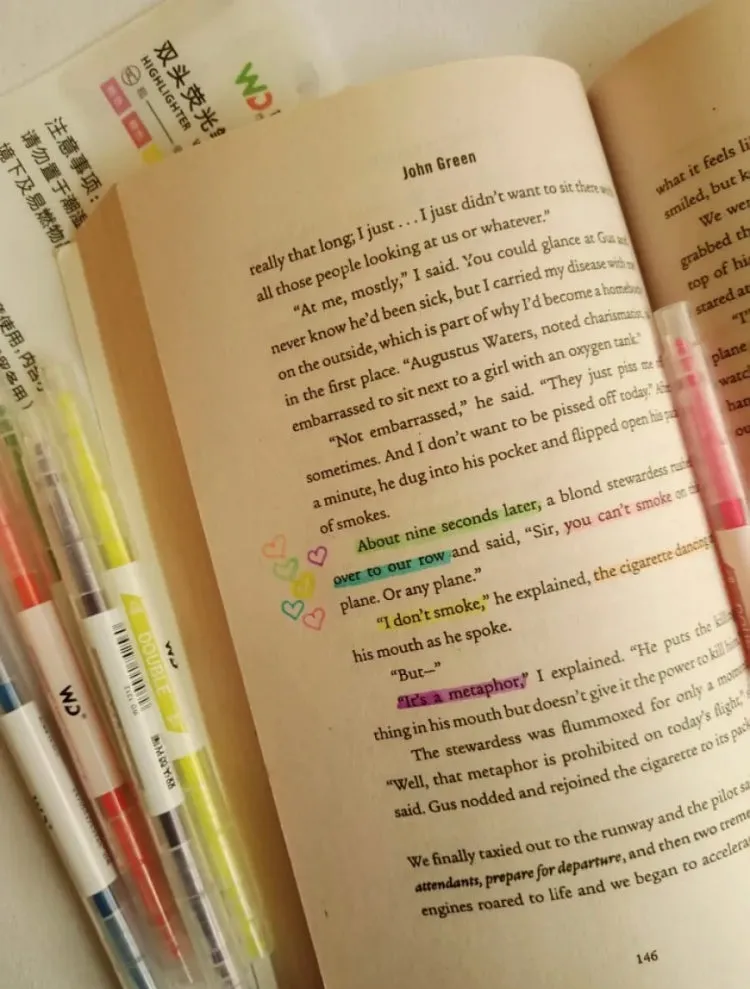 双头荧光
HIGHLIGHTER
WD
注意事项:
请勿置于潮湿
境下及易燃物
使用,内容
John Green
really that long; I just . . . I just didn't want to sit there with
all those people looking at us or whatever."
"At me, mostly," I said. You could glance at Gus and
never know he'd been sick, but I carried my disease with me
on the outside, which is part of why I'd become a homebody
in the first place. "Augustus Waters, noted charismatist,
embarrassed to sit next to a girl with an oxygen tank."
"Not embarrassed," he said. "They just piss me
sometimes. And I don't want to be pissed off today." After
a minute, he dug into his pocket and flipped open his pack
of smokes.
About nine seconds later, a blond stewardess rushed
over to our row and said, "Sir, you can't smoke on
plane. Or any plane."
"I don't smoke," he explained, the cigarette dancing
his mouth as he spoke.
"But—"
"It's a metaphor," I explained. "He puts the killing
thing in his mouth but doesn't give it the power to kill him
The stewardess was flummoxed for only a moment
"Well, that metaphor is prohibited on today's flight,"
said. Gus nodded and rejoined the cigarette to its pack
We finally taxied out to the runway and the pilot
attendants, prepare for departure, and then two
engines roared to life and we began to
146
what it feels
smiled, but
We were
grabbed
top of his
stared at
plane
DOUBLE
WD
WD